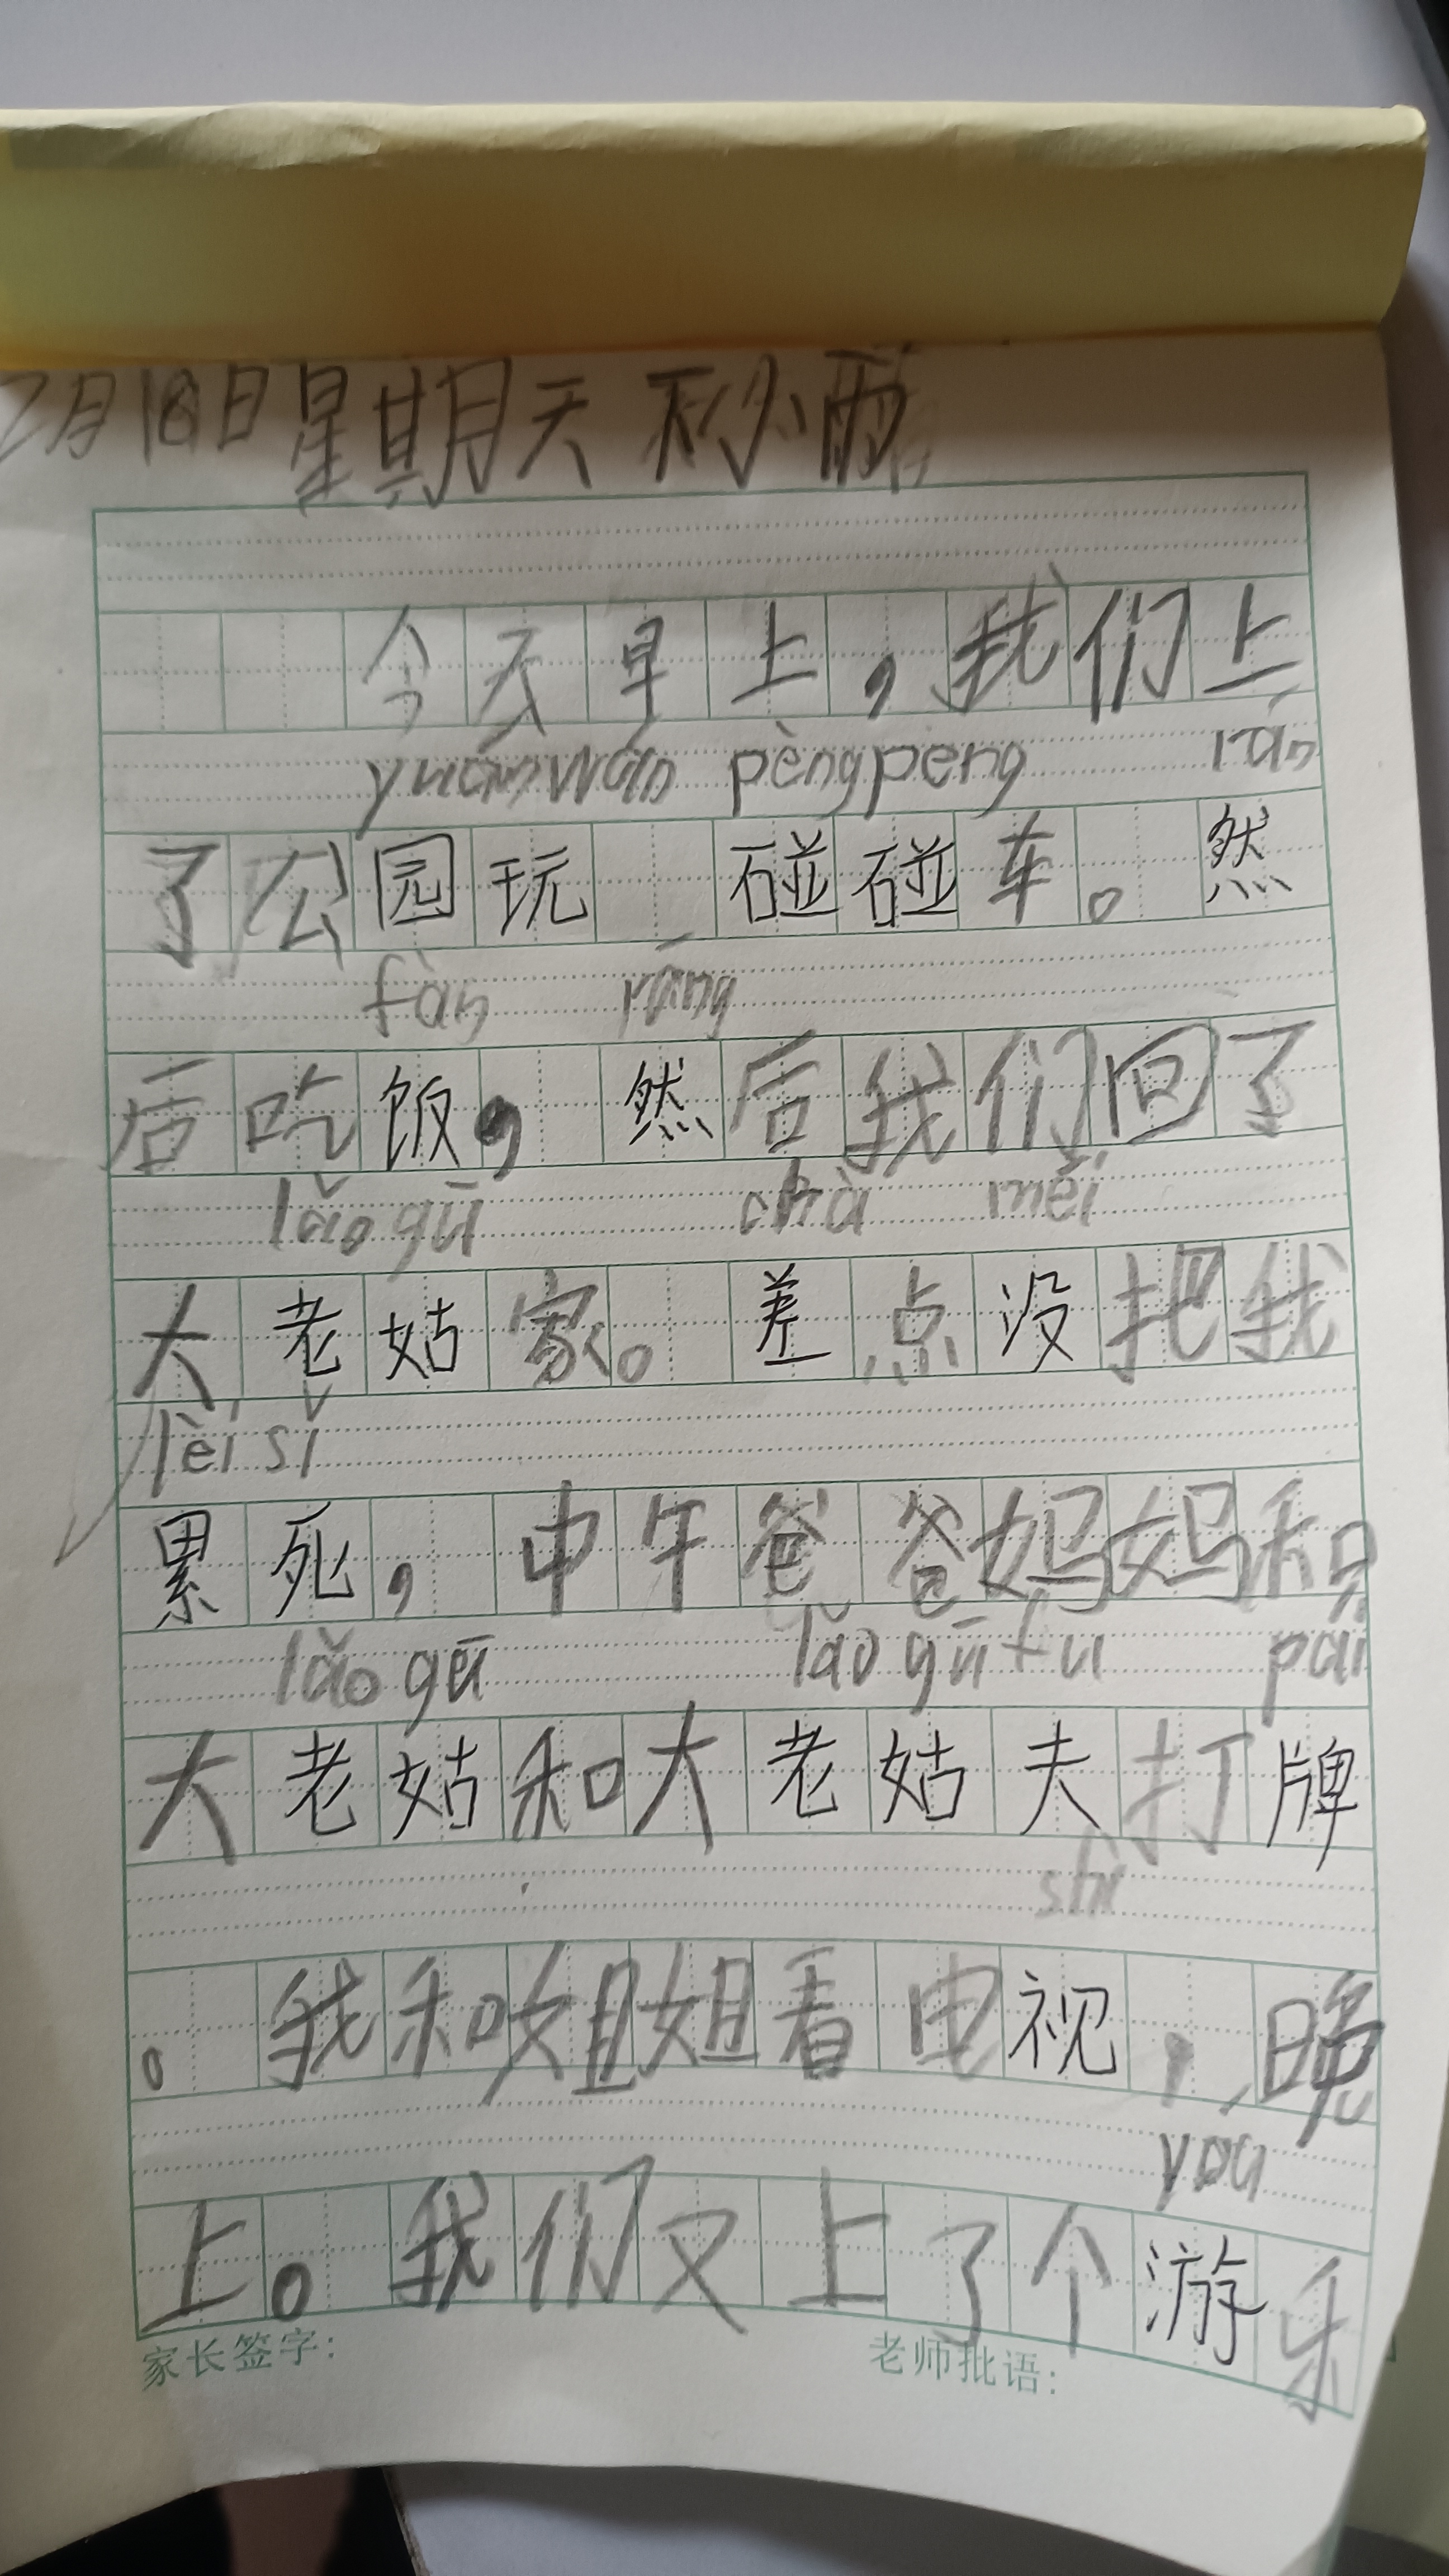 2月18日星期天 雨
今天早上，我们上
yuán wán pèng peng rán
了公园玩 碰碰车。然
fàn ráng
后吃饭，然后我们回了
lǎo gū chà méi
大老姑家。差点没把我
lèi sǐ
累死，中午爸爸妈妈和
lǎo gū lǎo gū fu pái
大老姑和大老姑夫打牌
shì
。我和姐姐看电视，晚
you
上。我们又上了个游乐
家长签字： 老师批语：